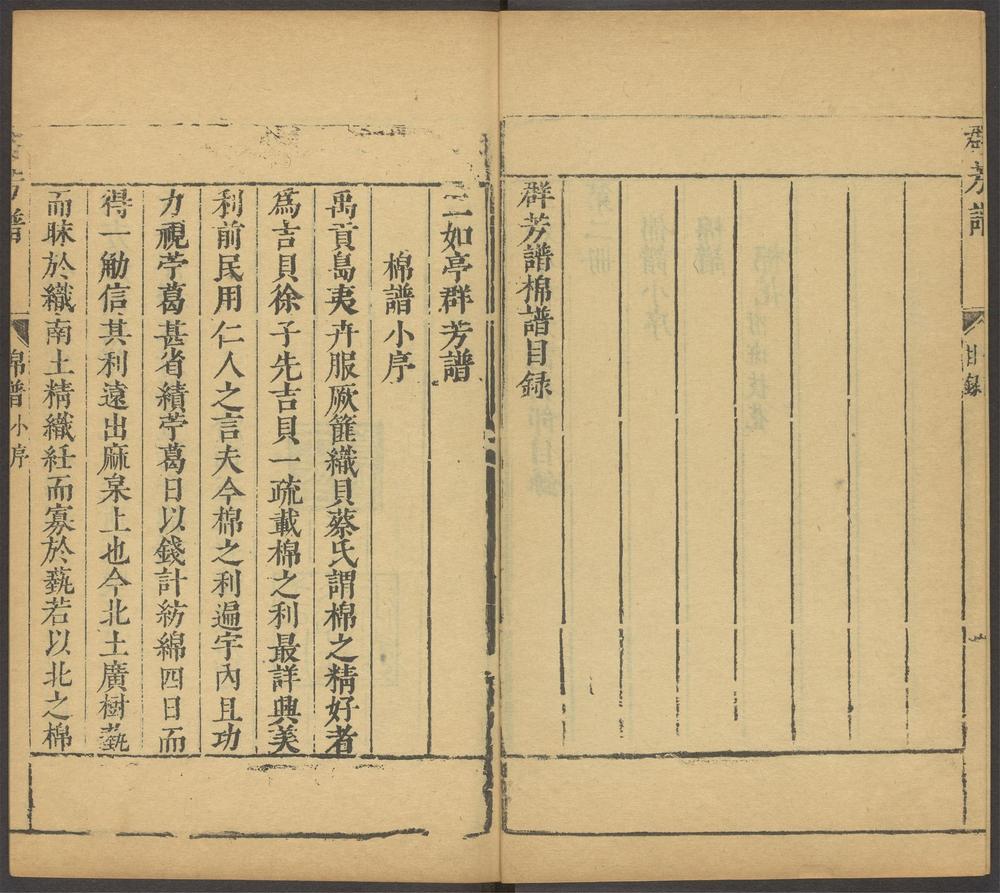 群芳譜
目錄
群芳譜棉譜目録
二如亭群芳譜
棉譜小序
禹貢島夷卉服厥篚織貝蔡氏謂棉之精好者
爲吉貝徐子先吉貝一疏載棉之利最詳興美
利前民用仁人之言夫今棉之利遍宇內且功
力視苧葛甚省績苧葛日以錢計紡綿四日而
得一觔信其利遠出麻枲上也今北土廣樹蓺
而昧於織南土精織絍而寡於蓺若以北之棉
芳譜
棉譜小序